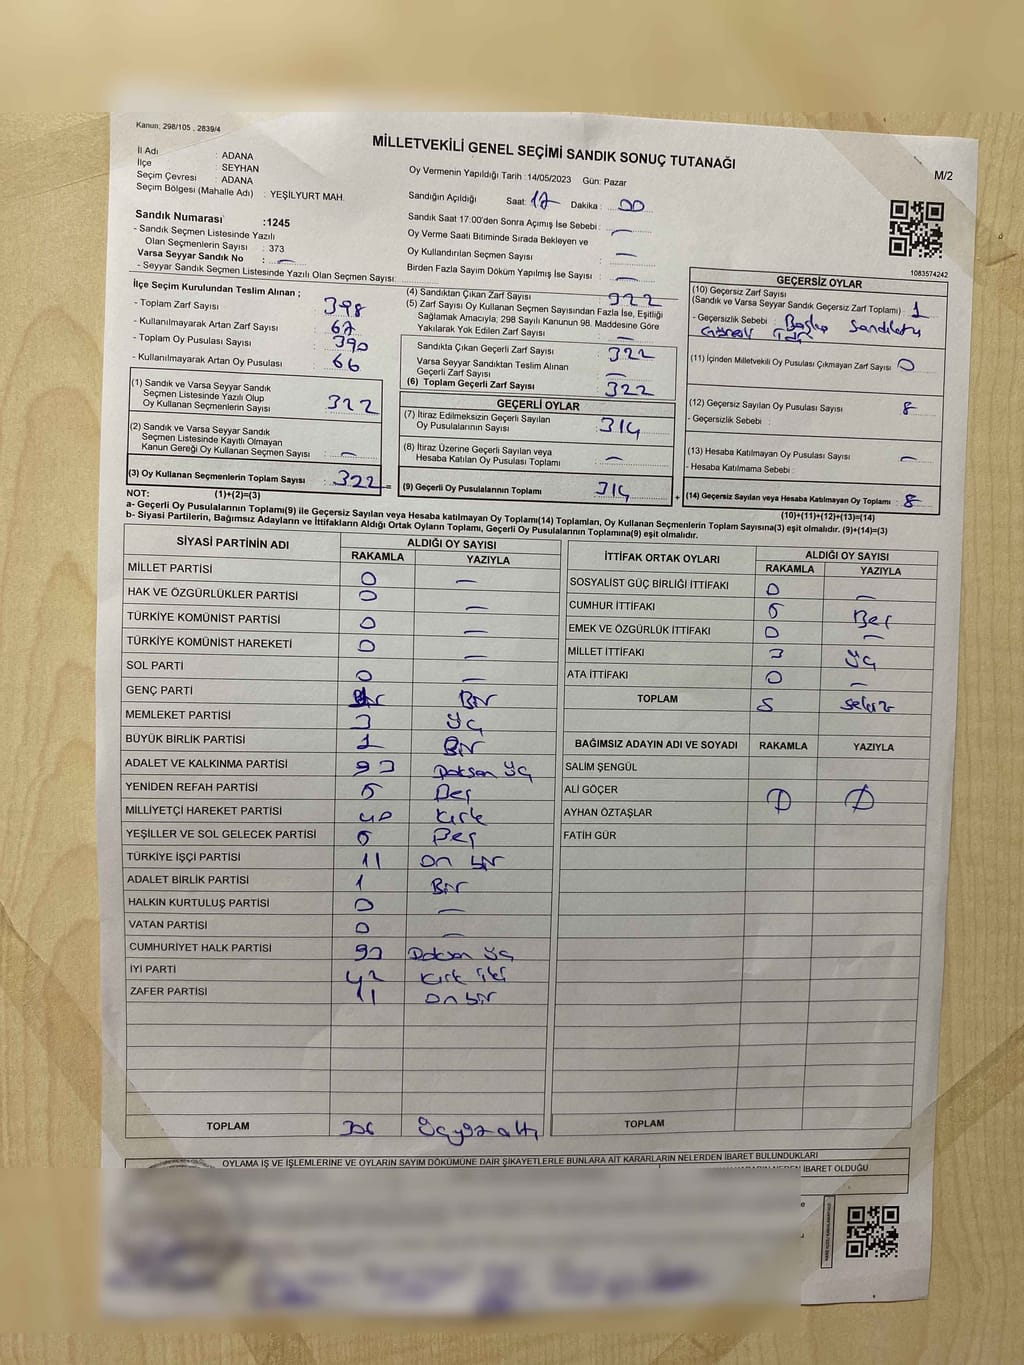 Kanun; 298/105 , 2839/4
MİLLETVEKİLİ GENEL SEÇİMİ SANDIK SONUÇ TUTANAĞI
M/2
İl Adı : ADANA
İlçe : SEYHAN
Seçim Çevresi : ADANA
Seçim Bölgesi (Mahalle Adı) : YEŞİLYURT MAH.
Oy Vermenin Yapıldığı Tarih :14/05/2023 Gün: Pazar
Sandığın Açıldığı Saat: 17 Dakika : 00
Sandık Saat 17:00'den Sonra Açımış İse Sebebi : —
Oy Verme Saati Bitiminde Sırada Bekleyen ve
Oy Kullandırılan Seçmen Sayısı : —
Birden Fazla Sayım Döküm Yapılmış İse Sayısı : —
Sandık Numarası :1245
- Sandık Seçmen Listesinde Yazılı
Olan Seçmenlerin Sayısı : 373
Varsa Seyyar Sandık No : —
- Seyyar Sandık Seçmen Listesinde Yazılı Olan Seçmen Sayısı:
1083574242
İlçe Seçim Kurulundan Teslim Alınan ;
- Toplam Zarf Sayısı : 398
- Kullanılmayarak Artan Zarf Sayısı : 67
- Toplam Oy Pusulası Sayısı : 390
- Kullanılmayarak Artan Oy Pusulası : 66
(1) Sandık ve Varsa Seyyar Sandık
Seçmen Listesinde Yazılı Olup
Oy Kullanan Seçmenlerin Sayısı : 322
(2) Sandık ve Varsa Seyyar Sandık
Seçmen Listesinde Kayıtlı Olmayan
Kanun Gereği Oy Kullanan Seçmen Sayısı : —
(3) Oy Kullanan Seçmenlerin Toplam Sayısı : 322
(4) Sandıktan Çıkan Zarf Sayısı : 322
(5) Zarf Sayısı Oy Kullanan Seçmen Sayısından Fazla İse, Eşitliği
Sağlamak Amacıyla, 298 Sayılı Kanunun 98. Maddesine Göre
Yakılarak Yok Edilen Zarf Sayısı : —
Sandıkta Çıkan Geçerli Zarf Sayısı : 322
Varsa Seyyar Sandıktan Teslim Alınan
Geçerli Zarf Sayısı : —
(6) Toplam Geçerli Zarf Sayısı : 322
GEÇERLİ OYLAR
(7) İtiraz Edilmeksizin Geçerli Sayılan
Oy Pusulalarının Sayısı : 314
(8) İtiraz Üzerine Geçerli Sayılan veya
Hesaba Katılan Oy Pusulası Toplamı : —
(9) Geçerli Oy Pusulalarının Toplamı : 314
GEÇERSİZ OYLAR
(10) Geçersiz Zarf Sayısı
(Sandık ve Varsa Seyyar Sandık Geçersiz Zarf Toplamı) : 1
- Geçersizlik Sebebi : Başka
(11) İçinden Milletvekili Oy Pusulası Çıkmayan Zarf Sayısı : 0
(12) Geçersiz Sayılan Oy Pusulası Sayısı : 8
- Geçersizlik Sebebi :
(13) Hesaba Katılmayan Oy Pusulası Sayısı : —
- Hesaba Katılmama Sebebi :
(14) Geçersiz Sayılan veya Hesaba Katılmayan Oy Toplamı : 8
NOT: (1)+(2)=(3)
(10)+(11)+(12)+(13)=(14)
a- Geçerli Oy Pusulalarının Toplamı(9) ile Geçersiz Sayılan veya Hesaba katılmayan Oy Toplamı(14) Toplamları, Oy Kullanan Seçmenlerin Toplam Sayısına(3) eşit olmalıdır. (9)+(14)=(3)
b- Siyasi Partilerin, Bağımsız Adayların ve İttifakların Aldığı Ortak Oyların Toplamı, Geçerli Oy Pusulalarının Toplamına(9) eşit olmalıdır.
SİYASİ PARTİNİN ADI ALDIĞI OY SAYISI
RAKAMLA YAZIYLA
MİLLET PARTİSİ 0 —
HAK VE ÖZGÜRLÜKLER PARTİSİ 0 —
TÜRKİYE KOMÜNİST PARTİSİ 0 —
TÜRKİYE KOMÜNİST HAREKETİ 0 —
SOL PARTİ 0 —
GENÇ PARTİ Bir
MEMLEKET PARTİSİ 3 Üç
BÜYÜK BİRLİK PARTİSİ 1 Bir
ADALET VE KALKINMA PARTİSİ 93 Doksan Üç
YENİDEN REFAH PARTİSİ 5 Beş
MİLLİYETÇİ HAREKET PARTİSİ 40 Kırk
YEŞİLLER VE SOL GELECEK PARTİSİ 5 Beş
TÜRKİYE İŞÇİ PARTİSİ 11 On bir
ADALET BİRLİK PARTİSİ 1 Bir
HALKIN KURTULUŞ PARTİSİ 0 —
VATAN PARTİSİ 0 —
CUMHURİYET HALK PARTİSİ 93 Doksan Üç
İYİ PARTİ 42 Kırk iki
ZAFER PARTİSİ 11 On bir
TOPLAM 306 Üçyüz altı
İTTİFAK ORTAK OYLARI ALDIĞI OY SAYISI
RAKAMLA YAZIYLA
SOSYALİST GÜÇ BİRLİĞİ İTTİFAKI 0 —
CUMHUR İTTİFAKI 5 Beş
EMEK VE ÖZGÜRLÜK İTTİFAKI 0 —
MİLLET İTTİFAKI 3 Üç
ATA İTTİFAKI 0 —
TOPLAM 8 sekiz
BAĞIMSIZ ADAYIN ADI VE SOYADI RAKAMLA YAZIYLA
SALİM ŞENGÜL
ALİ GÖÇER
AYHAN ÖZTAŞLAR
FATİH GÜR
TOPLAM
OYLAMA İŞ VE İŞLEMLERİNE VE OYLARIN SAYIM DÖKÜMÜNE DAİR ŞİKAYETLERLE BUNLARA AİT KARARLARIN NELERDEN İBARET BULUNDUKLARI
İBARET OLDUĞU